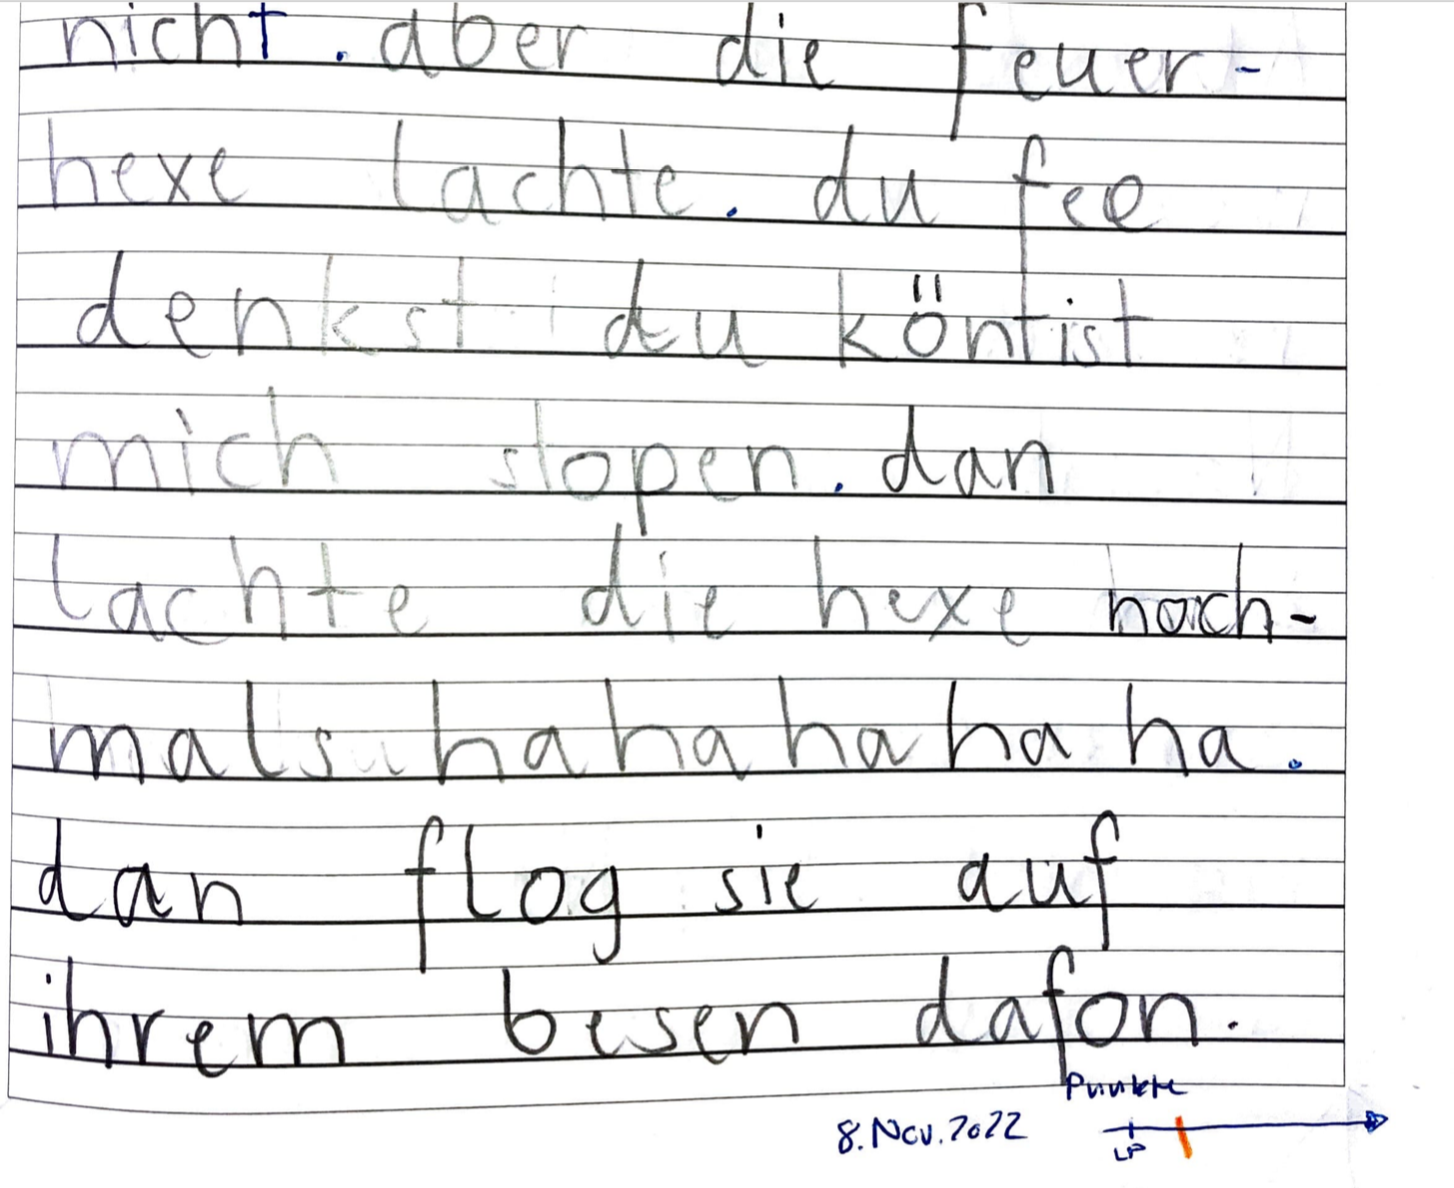 nicht. aber die feuer-
hexe lachte. du fee
denkst du köntist
mich stopen. dan
lachte die hexe noch-
mals hahahahaha.
dan flog sie auf
ihrem besen dafon.
Punkte
8. Nov. 2022
LP